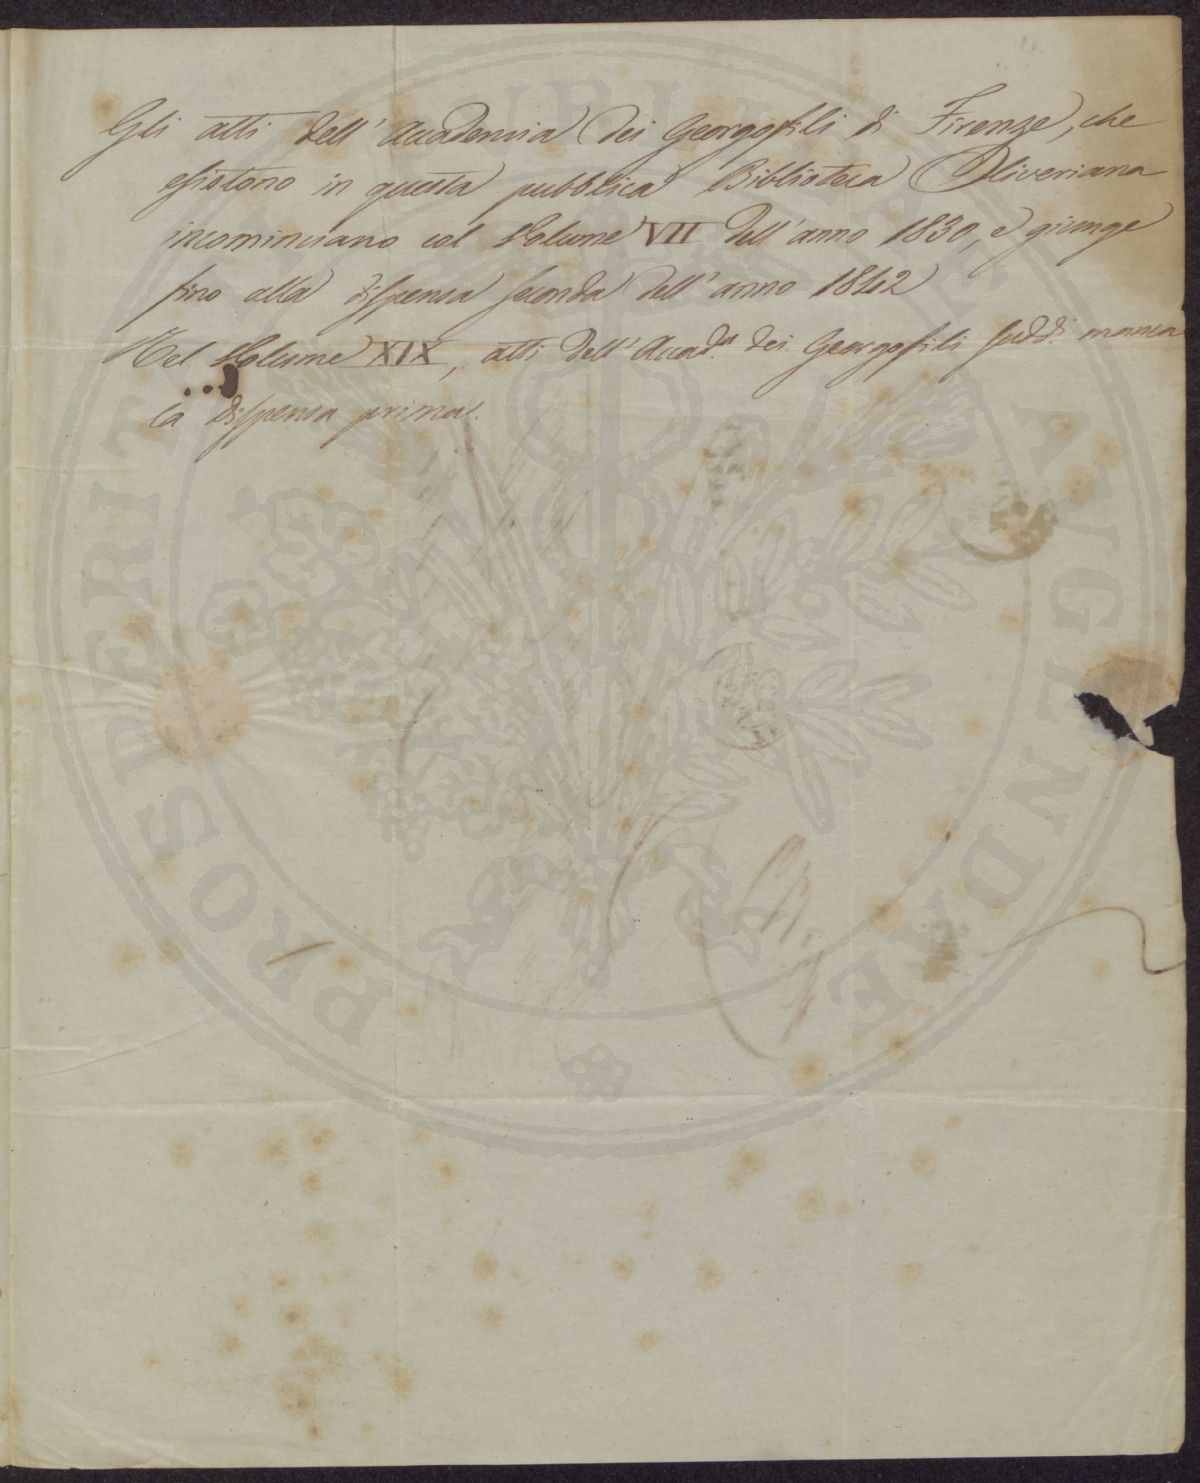 Gli atti dell'Accademia dei Georgofili di Firenze, che
esistono in questa pubblica Biblioteca Oliveriana
incominciano col Volume VII dell'anno 1830, e giunge
fino alla dispensa seconda dell'anno 1842
Nel Volume XIX, atti dell'Accad.a dei Georgofili sudd.i manca
la dispensa prima.
PROSPERITATI PUBLICAE AVGENDAE